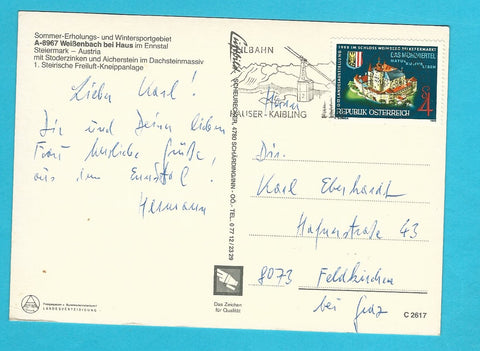 Sommer-Erholungs- und Wintersportgebiet
A-8967 Weißenbach bei Haus im Ennstal
Steiermark – Austria
mit Stoderzinken und Aichenstein im Dachsteinmassiv
1. Steirische Freiluft-Kneippanlage
Lieber Karl!
Dir und Deiner lieben
Frau herzliche Grüße,
aus dem Ennstal!
Hermann
LANDESVERTEIDIGUNG
SCHEUREKER, 4780 SCHÄRDING/INN - OÖ. - TEL. 0 77 12 / 23 29
Das Zeichen
für Qualität
ILBAHN
HAUSER-KAIBLING
OÖ LANDESAUSSTELLUNG 1988 IM SCHLOSS WEINBERG BEI KEFERMARKT
DAS MÜHLVIERTEL
NATUR
KULTUR
LEBEN
S 4
REPUBLIK ÖSTERREICH
Herrn
Dir.
Karl Eberhardt
Hafnerstraße 43
8073 Feldkirchen
bei Graz
C 2617